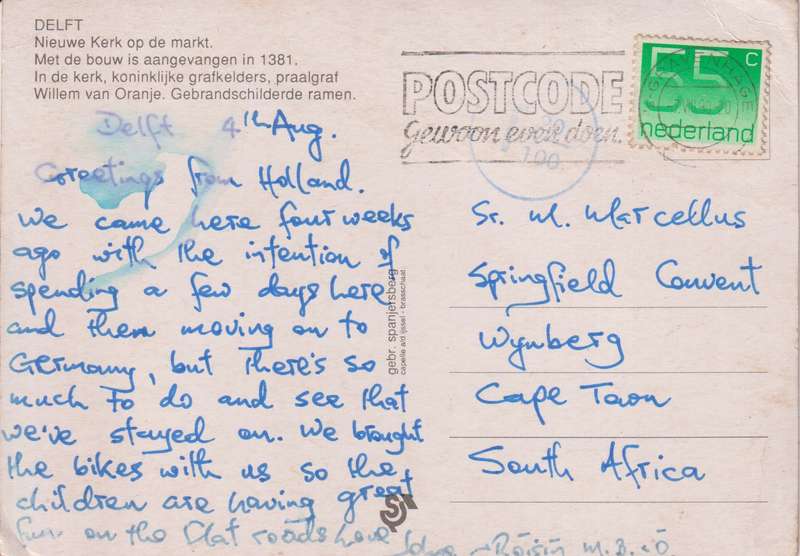 DELFT
Nieuwe Kerk op de markt.
Met de bouw is aangevangen in 1381.
In de kerk, koninklijke grafkelders, praalgraf
Willem van Oranje. Gebrandschilderde ramen.
POSTCODE
Gewoon even doen.
55 c
nederland
100
Delft 4th Aug.
Greetings from Holland.
We came here four weeks
ago with the intention of
spending a few days here
and then moving on to
Germany, but there's so
much to do and see that
we've stayed on. We brought
the bikes with us so the
children are having great
fun on the flat roads here
Róisín
gebr. spanjersberg
capelle a/d ijssel - brasschaat
Sr. M. Marcellus
Springfield Convent
Wynberg
Cape Town
South Africa